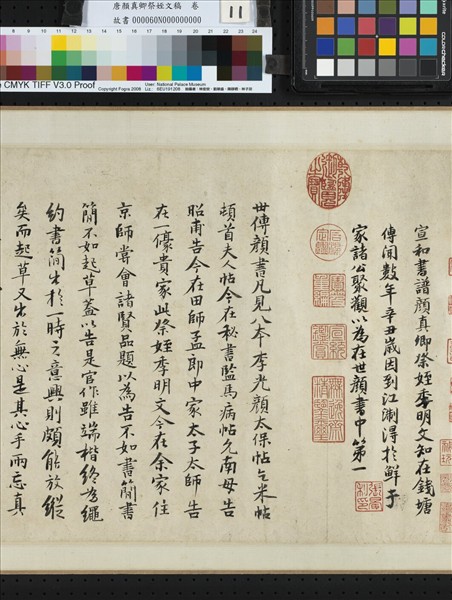 唐顏真卿祭姪文稿 卷
故書 000060N000000000
11
CMYK TIFF V3.0 Proof
Copyright Fogra 2008
User: National Palace Museum
宣和書譜顏真卿祭姪季明文知在錢塘
傳聞數年辛丑歲因到江淛得於鮮于
家諸公聚觀以為在世顏書中第一
世傳顏書凡見八本李光顏太保帖乞米帖
頓首夫人帖今在秘書監馬病帖允南母告
昭甫告今在田師孟郎中家太子太師告
在一豪貴家此祭姪季明文今在余家往
京師嘗會諸賢品題以為告不如書簡書
簡不如起草蓋以告是官作雖端楷終為繩
約書簡出於一時之意興則頗能放縱
矣而起草又出於無心是其心手兩忘真